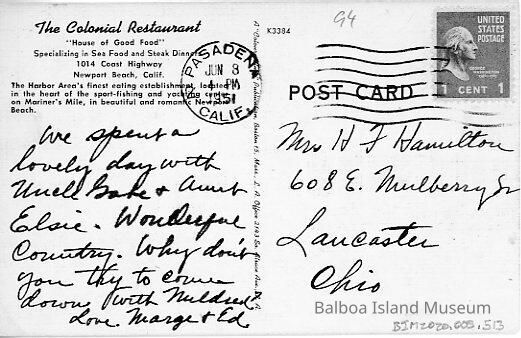 The Colonial Restaurant
"House of Good Food"
Specializing in Sea Food and Steak Dinners
1014 Coast Highway
Newport Beach, Calif.
The Harbor Area's finest eating establishment, located
in the heart of the sport-fishing and yachting
on Mariner's Mile, in beautiful and romantic Newport
Beach.
We spent a
lovely day with
Uncle Gabe & Aunt
Elsie. Wonderful
Country. Why don't
you try to come
down with Mildred
Love Marge & Ed.
K3384
94
PASADENA
JUN 8
PM
1951
CALIF.
UNITED
STATES
POSTAGE
1 CENT 1
POST CARD
Mrs H F Hamilton
608 E. Mulberry St
Lancaster
Ohio
Balboa Island Museum
BIM2020.005.513